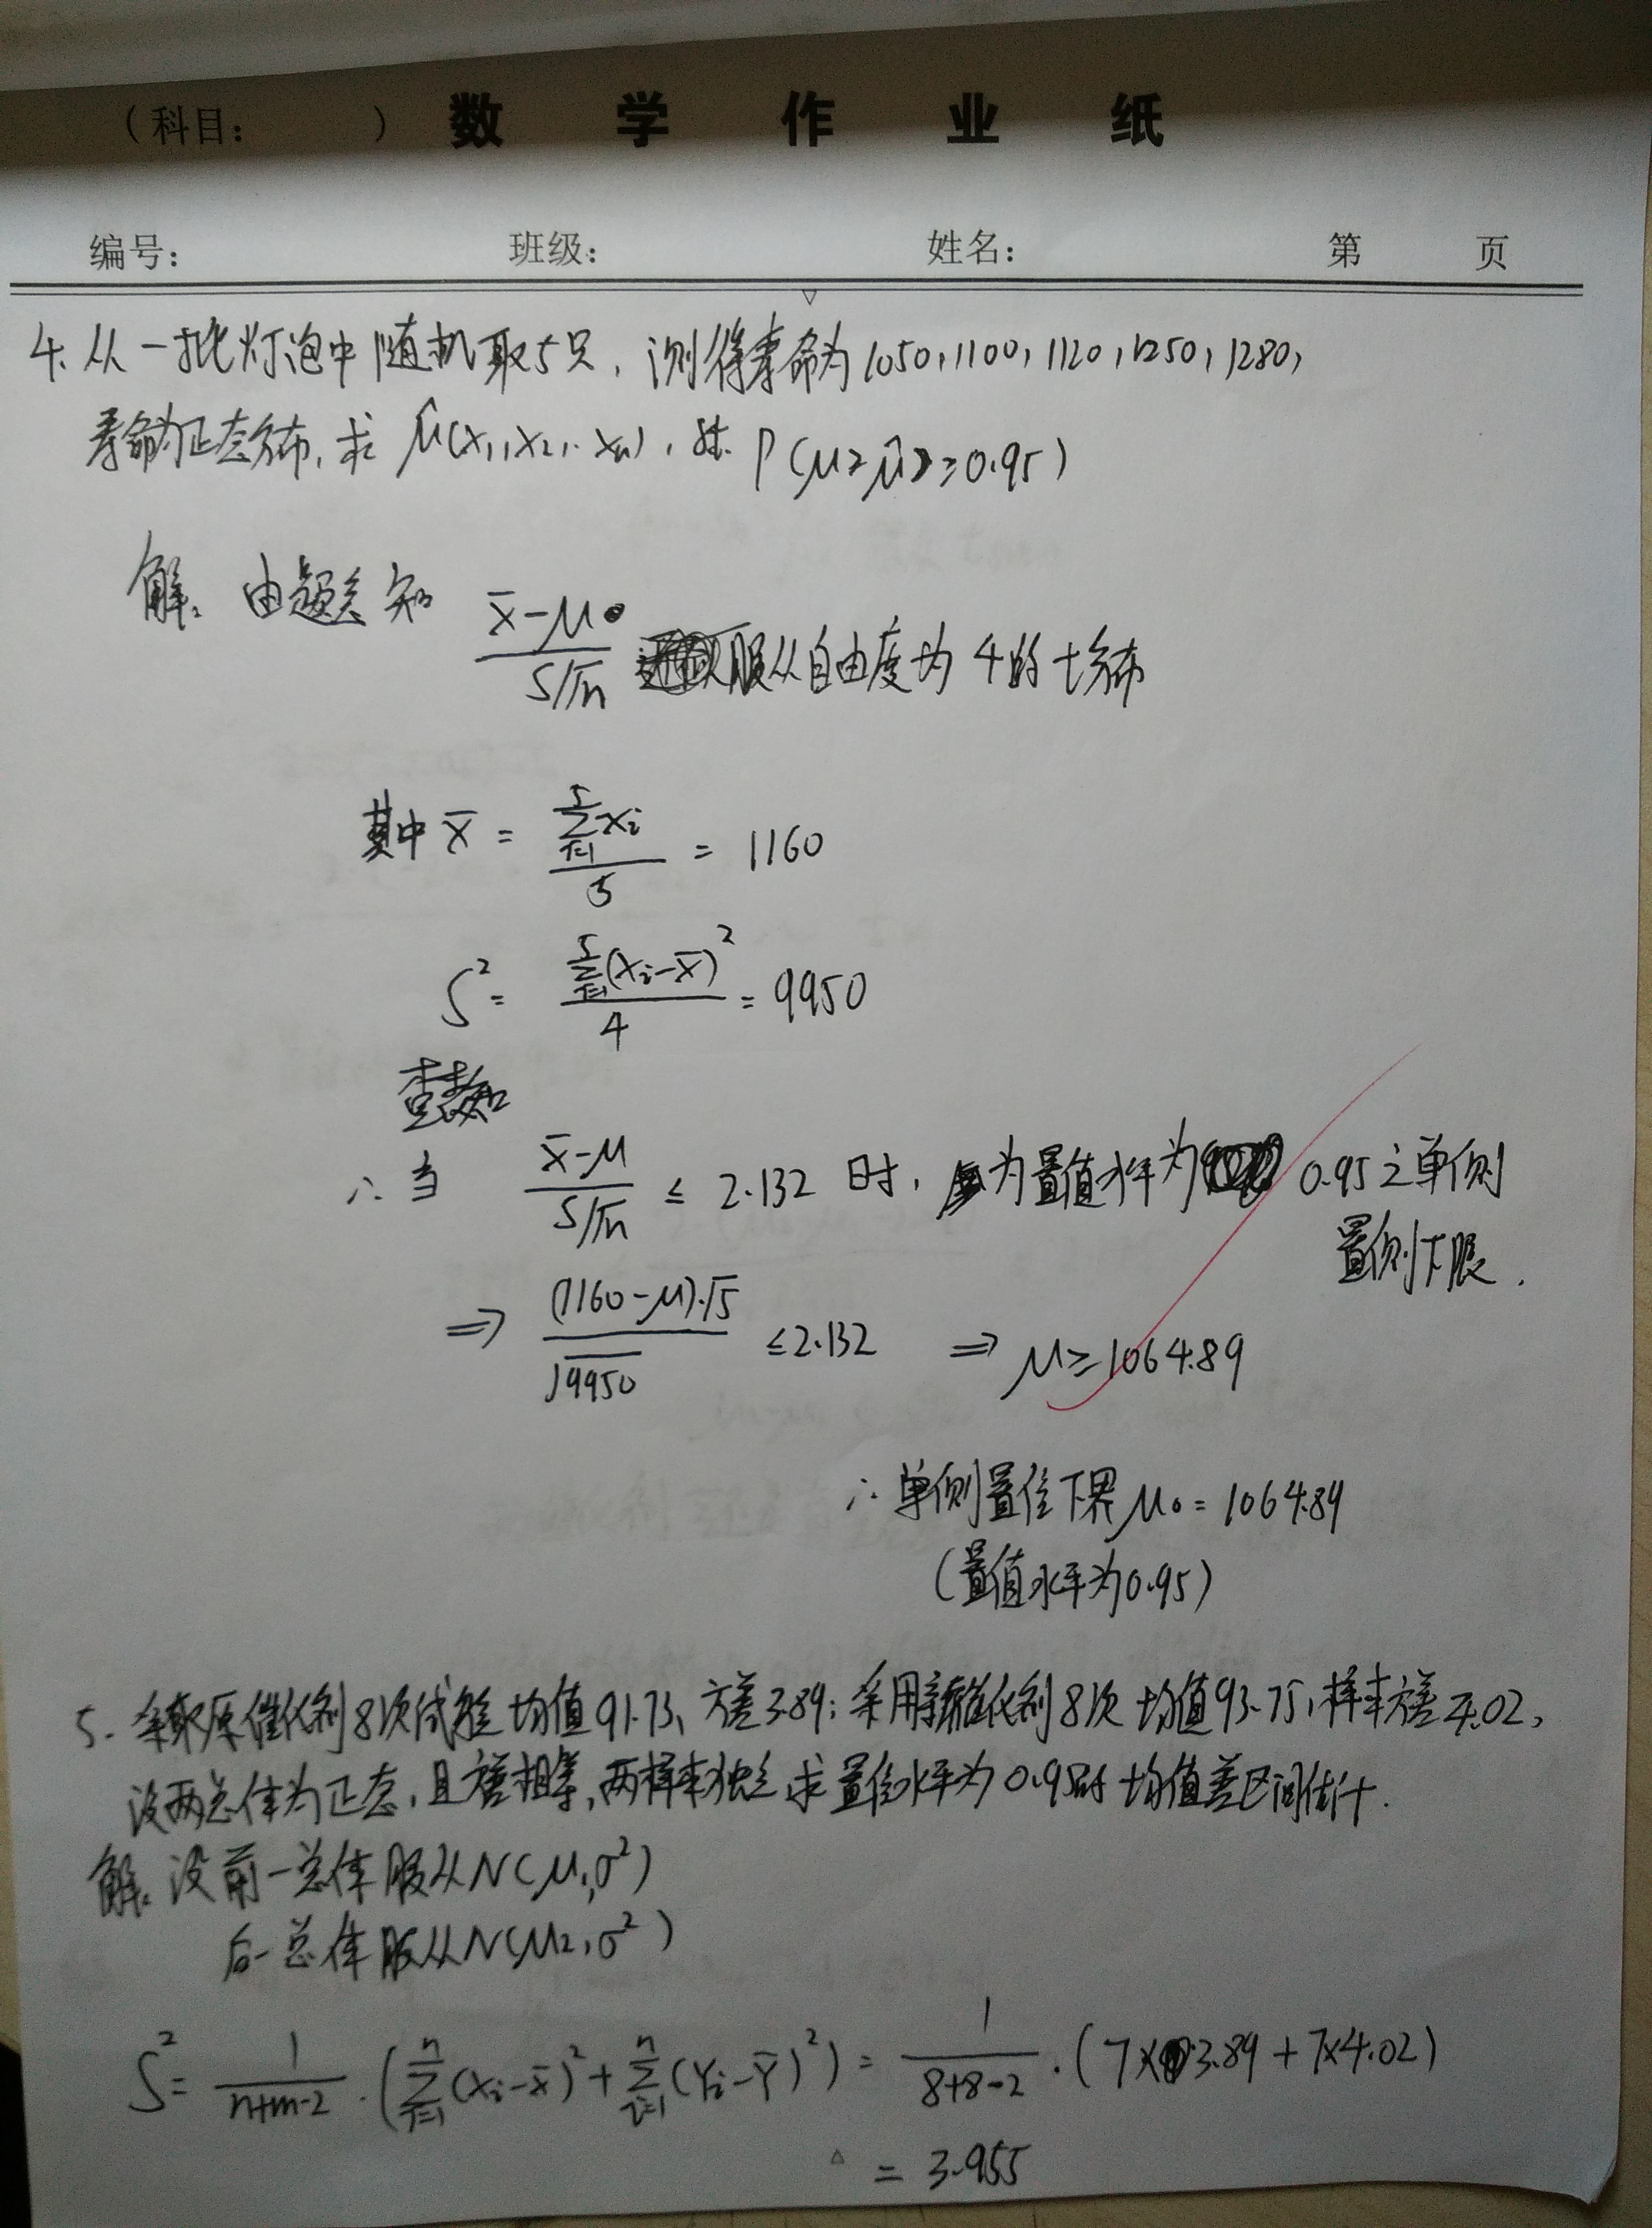 （科目：　　　）数学作业纸
编号：　　　班级：　　　姓名：　　　第　　页
4. 从一批灯泡中随机取5只，测得寿命为1050，1100，1120，1250，1280，
寿命为正态分布，求 μ̂(x₁,x₂,..xₙ)，st. P(μ≥μ̂)≥0.95)
解：由题意知 (x̄-μ)/(S/√n) 服从自由度为4的t分布
其中 x̄ = (∑_{i=1}^{5} xᵢ)/5 = 1160
S² = (∑_{i=1}^{5}(xᵢ-x̄)²)/4 = 9950
查表知
∴ 当 (x̄-μ)/(S/√n) ≤ 2.132 时，为置值水平为 0.95之单侧
置侧下限.
⇒ ((1160-μ)·√5)/√9950 ≤ 2.132 ⇒ μ ≥ 1064.89
∴ 单侧置信下界 μ₀ = 1064.89
(置值水平为0.95)
5. 采取原催化剂8次试验 均值91.73，方差3.89；采用新催化剂8次 均值93.75，样本方差4.02，
设两总体为正态，且方差相等，两样本独立 求置信水平为0.95时 均值差区间估计.
解：设前一总体服从N(μ₁,σ²)
后一总体服从N(μ₂,σ²)
S² = 1/(n+m-2) · (∑_{i=1}^{n}(xᵢ-x̄)² + ∑_{i=1}^{n}(Yᵢ-Ȳ)²) = 1/(8+8-2) · (7×3.89+7×4.02)
= 3.955